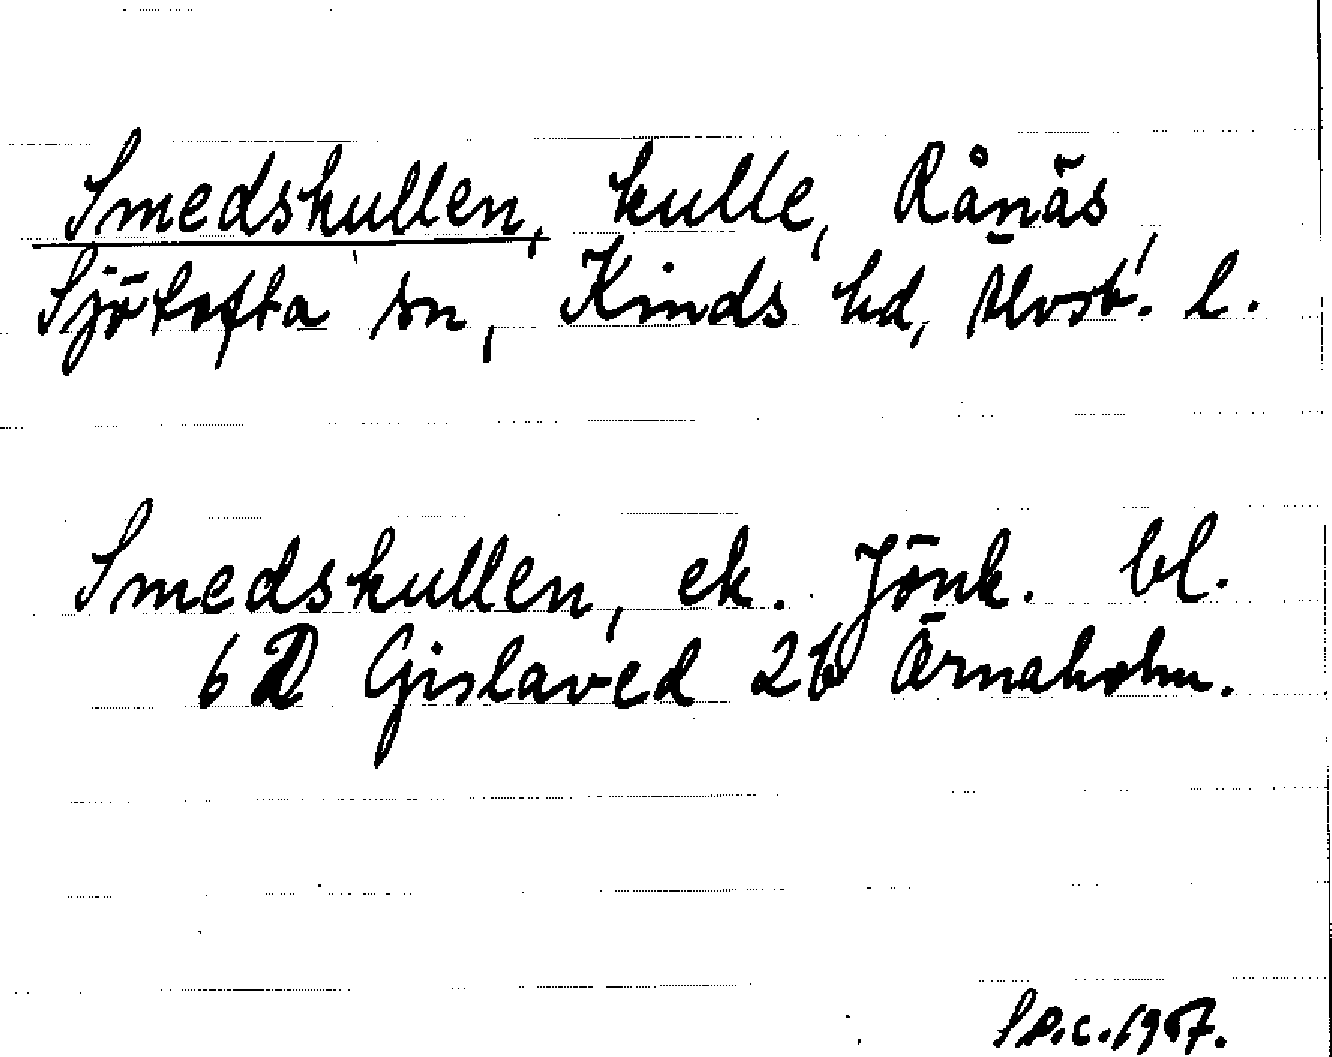 Smedskullen, kulle, Rånäs,
Sjötofta sn, Kinds hd, Älvsb. l.
Smedskullen, ek. Jönk. bl.
6 D Gislaved 2b Ärnaholm.
1967.